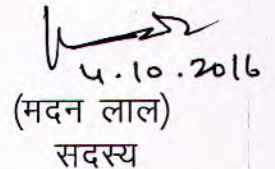 4.10.2016
(मदन लाल)
सदस्य